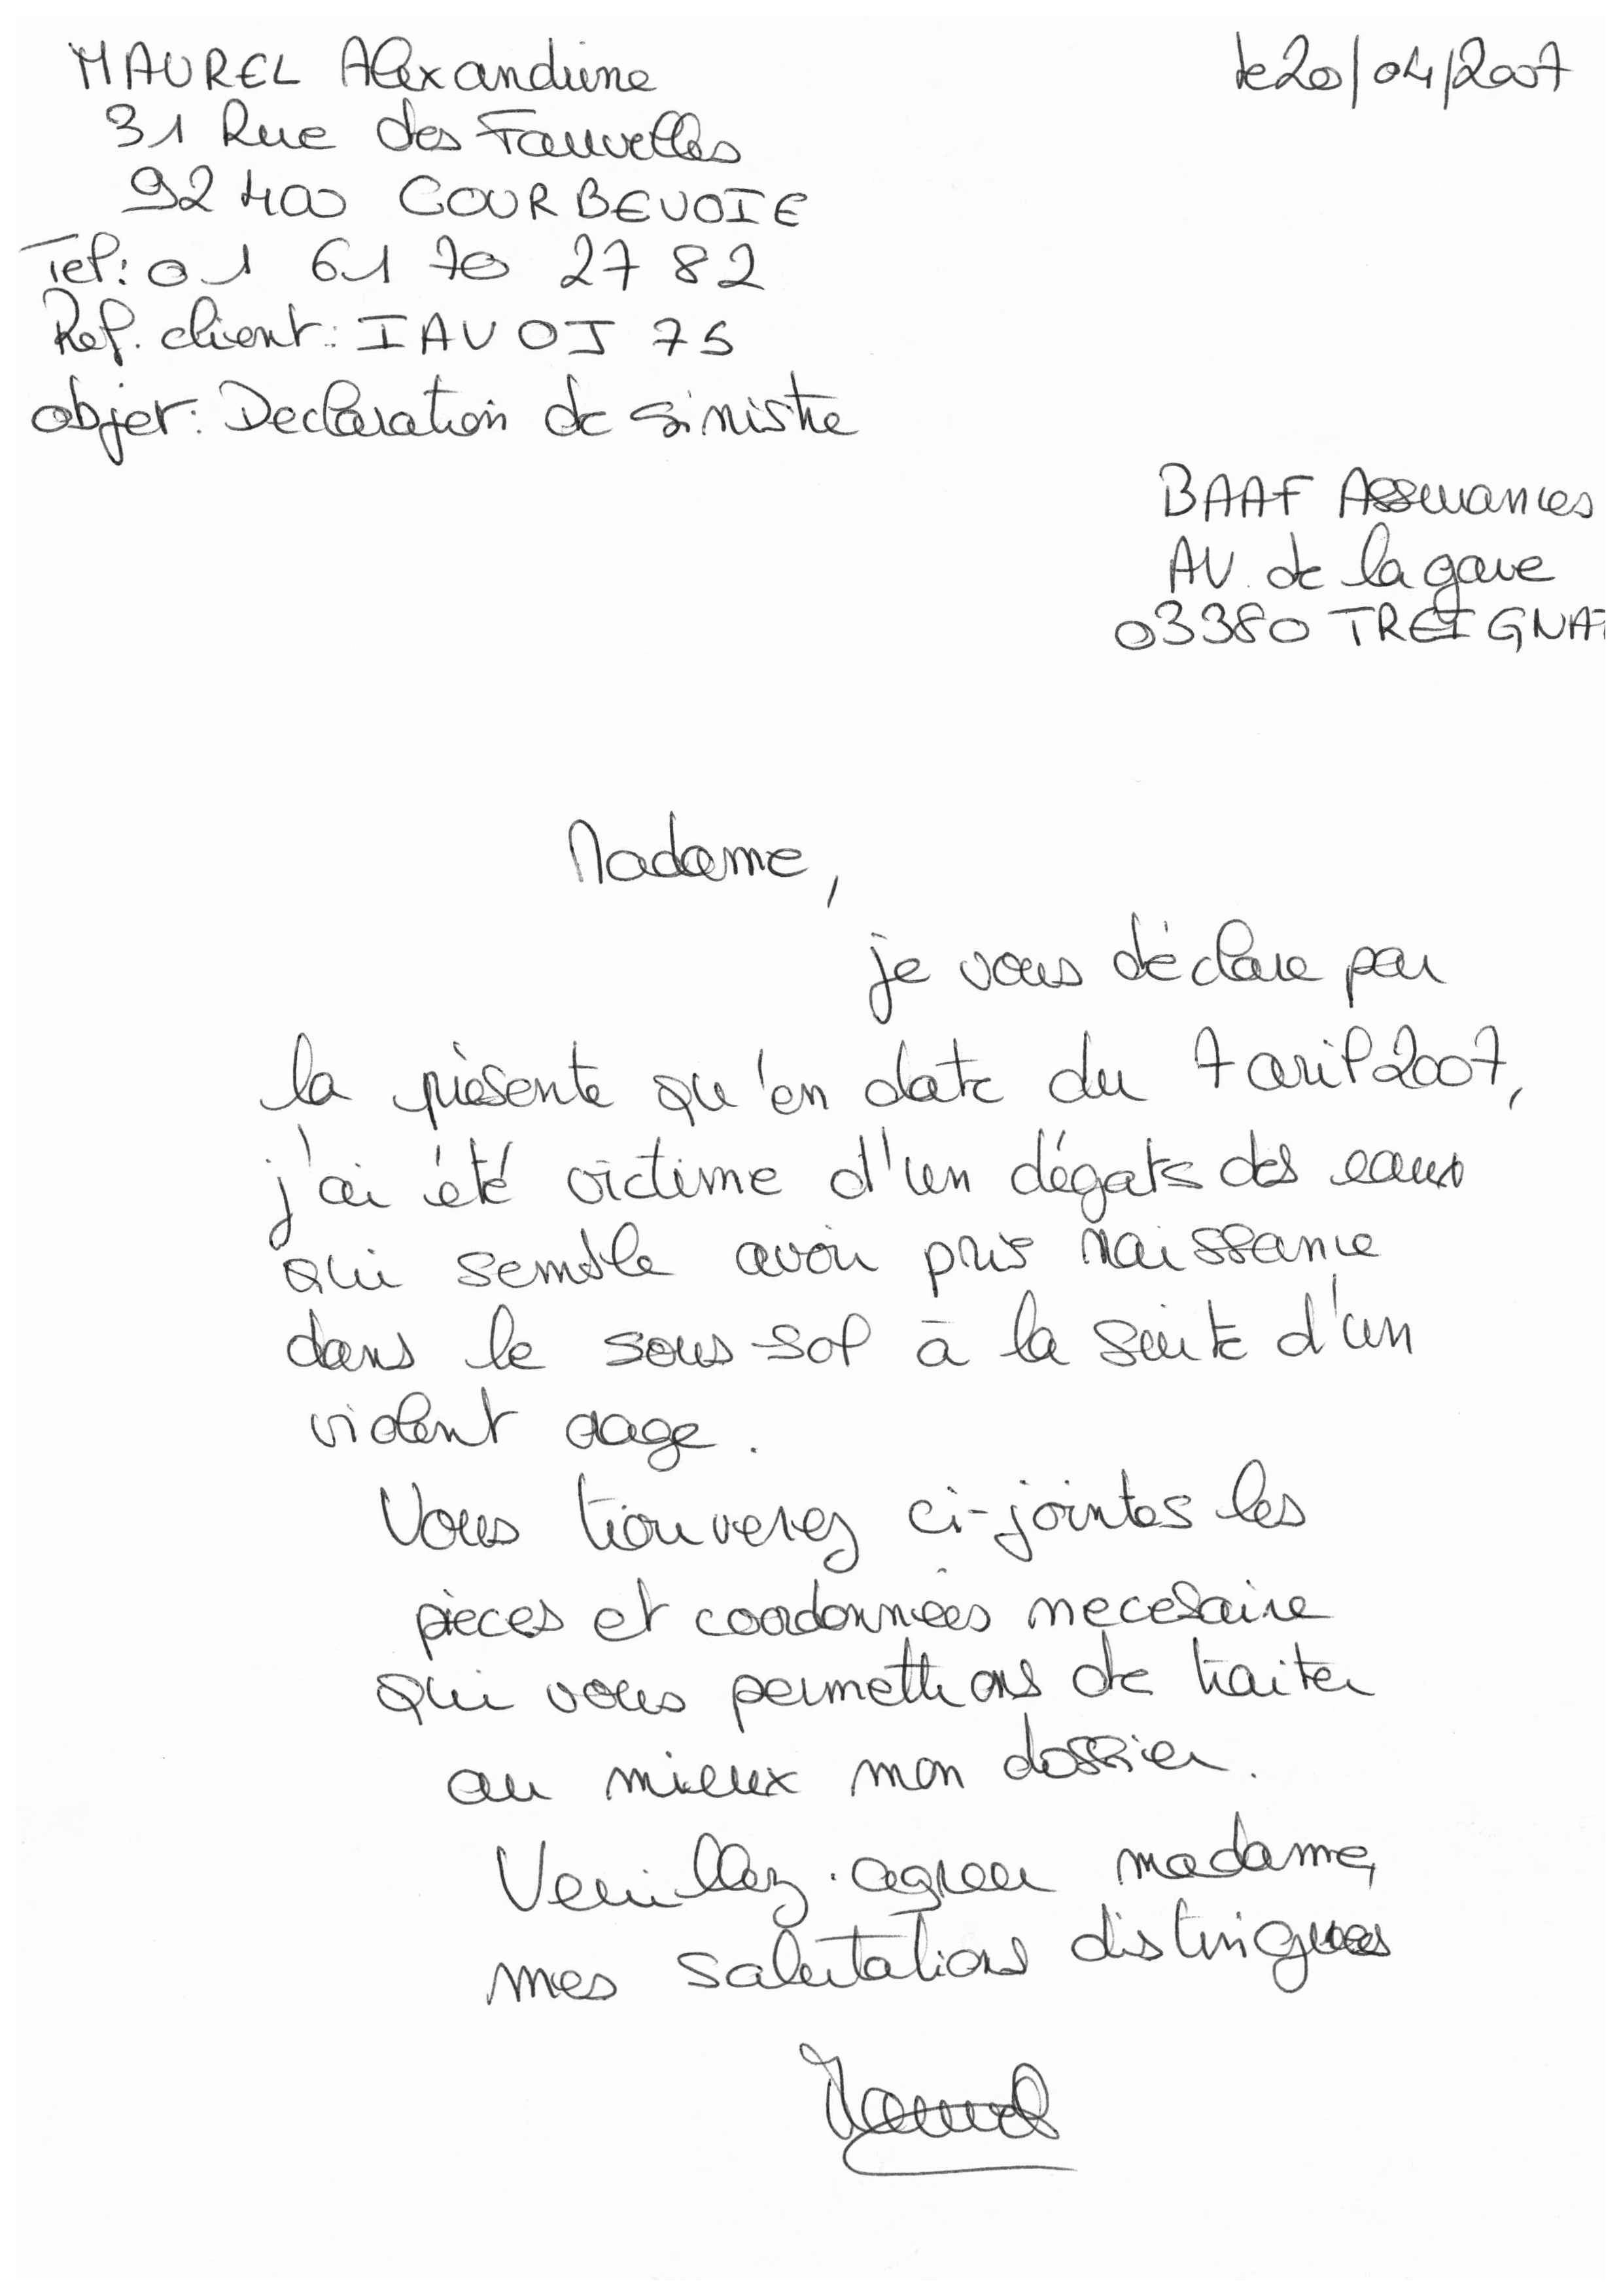 MAUREL Alexandrine
le 20/04/2007
31 Rue des Fauvelles
92400 COURBEVOIE
Tel: 01 61 70 27 82
Ref. client: IAVOJ 75
objet: Declaration de sinistre
BAAF Assurances
AV. de la gare
03380 TREIGNAT
Madame,
je vous déclare par
la présente qu'en date du 7 avril 2007,
j'ai été victime d'un dégats des eaux
qui semble avoir pris naissance
dans le sous-sol à la suite d'un
violent orage.
Vous trouverez ci-jointes les
pièces et coordonnées necesaire
qui vous permettrons de traiter
au mieux mon dossier.
Veuillez agreer madame,
mes salutations distinguees
Maurel